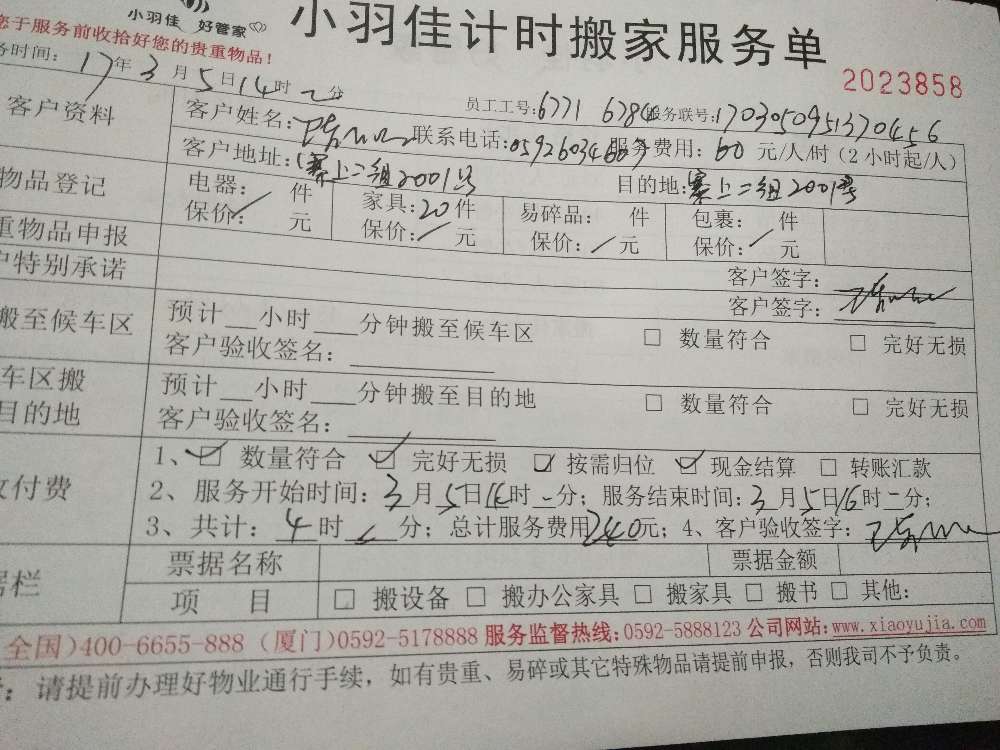 小羽佳 好管家
小羽佳计时搬家服务单
您于服务前收拾好您的贵重物品！
2023858
务时间：17年3月5日14时 分
员工工号：6771 6784 服务联号：1703050951370456
客户资料
客户姓名： 联系电话： 服务费用：60元/人/时（2小时起/人）
客户地址：寨上二组2001号 目的地：寨上二组2001号
物品登记
电器：／件 家具：20件 易碎品： 件 包裹： 件
保价： 元 保价：／元 保价：／元 保价：／元
重物品申报
客户签字：
户特别承诺
客户签字：
搬至候车区
预计__小时___分钟搬至候车区 □ 数量符合 □ 完好无损
客户验收签名：
车区搬
目的地
预计__小时___分钟搬至目的地 □ 数量符合 □ 完好无损
客户验收签名：
付费
1、☑ 数量符合 ☑ 完好无损 ☑ 按需归位 ☑ 现金结算 □ 转账汇款
2、服务开始时间：3月5日14时 分；服务结束时间：3月5日16时 分；
3、共计：4时 分；总计服务费用240元；4、客户验收签字：
据栏
票据名称 票据金额
项 目 □ 搬设备 □ 搬办公家具 □ 搬家具 □ 搬书 □ 其他：
全国)400-6655-888（厦门)0592-5178888 服务监督热线：0592-5888123 公司网站：www.xiaoyujia.com
：请提前办理好物业通行手续，如有贵重、易碎或其它特殊物品请提前申报，否则我司不予负责。